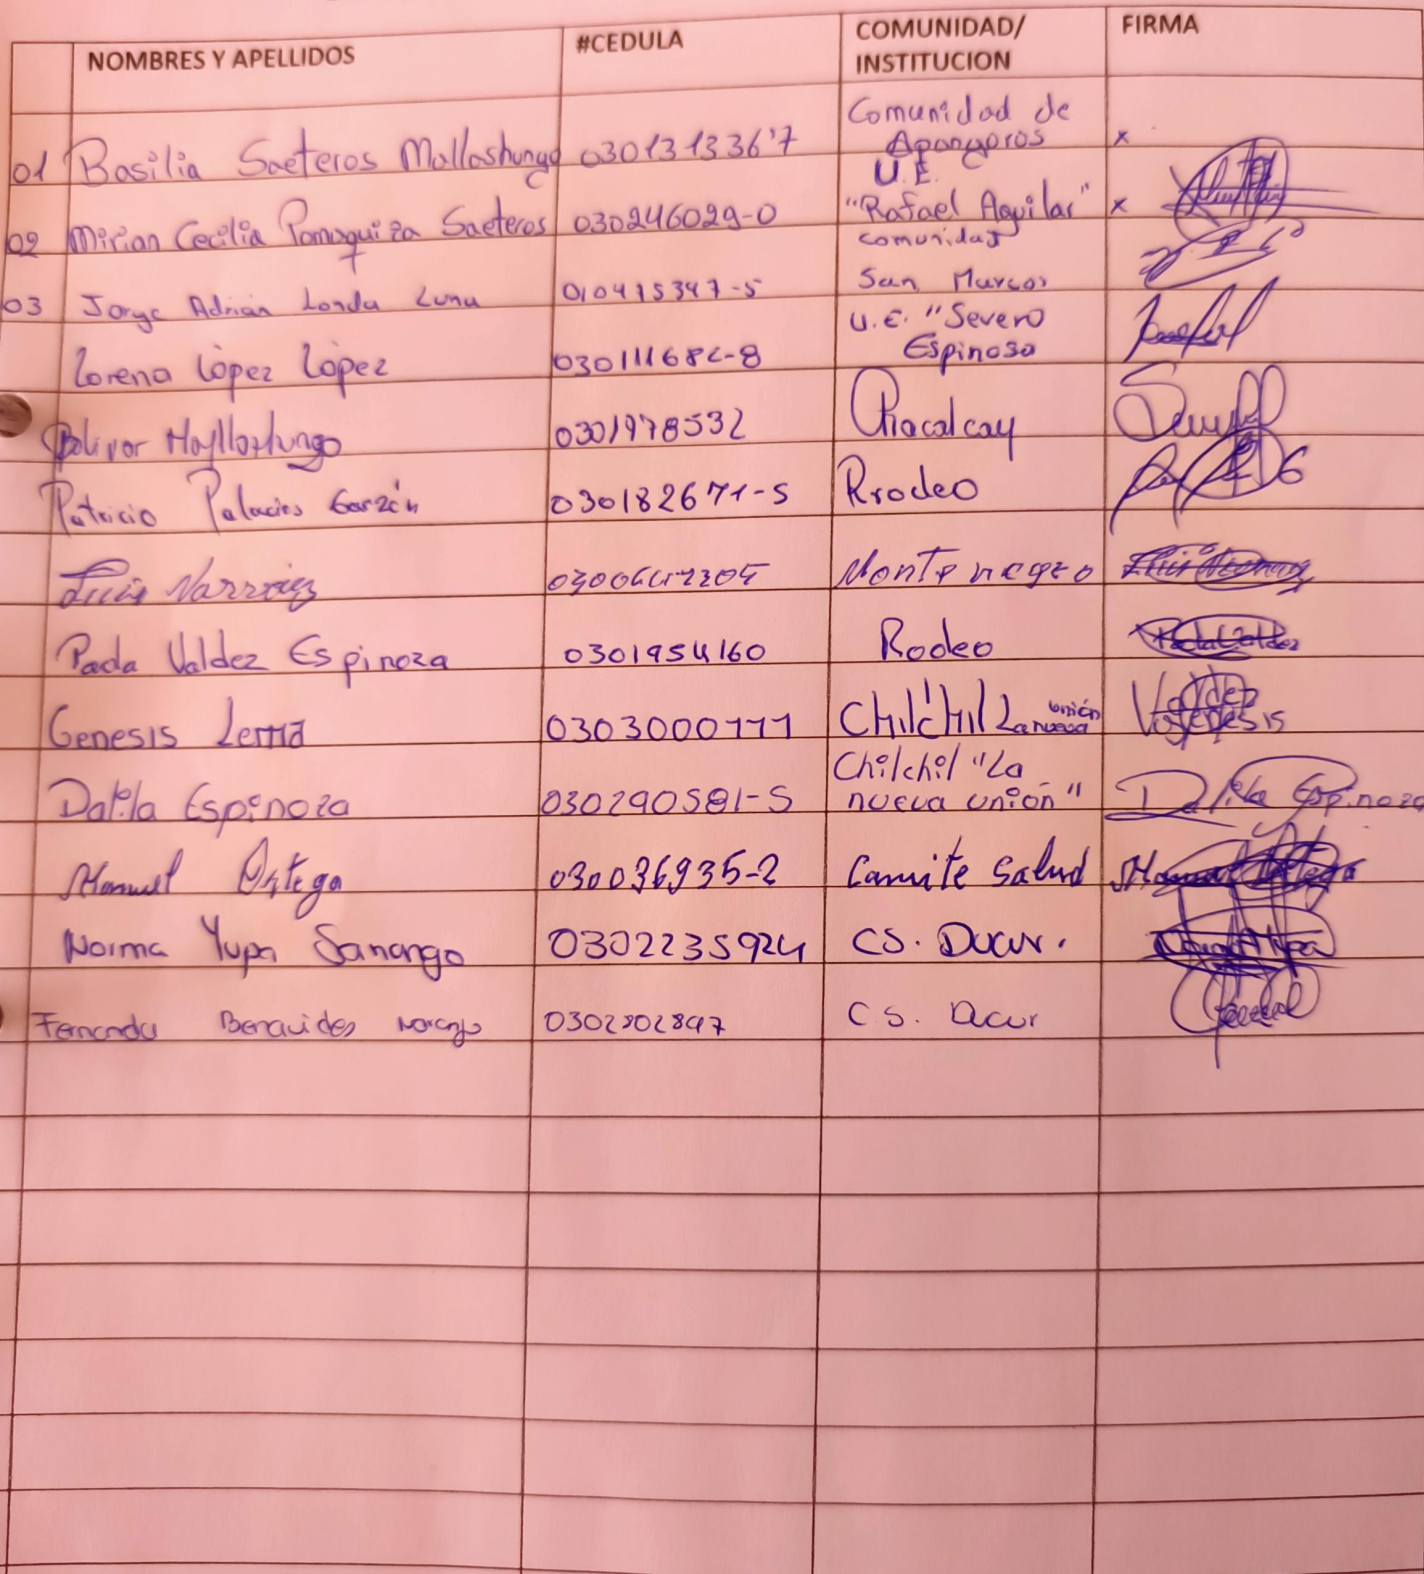 NOMBRES Y APELLIDOS #CEDULA COMUNIDAD/ INSTITUCION FIRMA
Comunidad de
01 Basilia Saeteros Mallashungo 030131336'7 Apangoros x
U.E.
02 Mirian Cecilia Pomaquiza Saeteros 030246029-0 "Rafael Aguilar" x
comunidad
03 Jorge Adrián Landa Luna 010415347-5 San Marcos
U.E. "Severo
Lorena López López 030111682-8 Espinosa
Bolivar Mayllashungo 0301978532 Chacalcay
Patricio Palacios Garzón 030182671-5 Rrodeo
Luis Narváez Montenegro
Paola Valdez Espinoza 0301954160 Rodeo Paola Valdez
Genesis Lema 0303000111 Chilchil La nueva unión Genesis
Chilchil "La
Dalila Espinoza 030290581-5 nueva unión" Dalila Espinoza
Manuel Ortega 030036935-2 Camite Salud Manuel Ortega
Norma Yupa Sanango 0302235924 CS. Ducur. Norma Yupa
Fernanda Benavides Naranjo 0302802847 C.S. Ducur